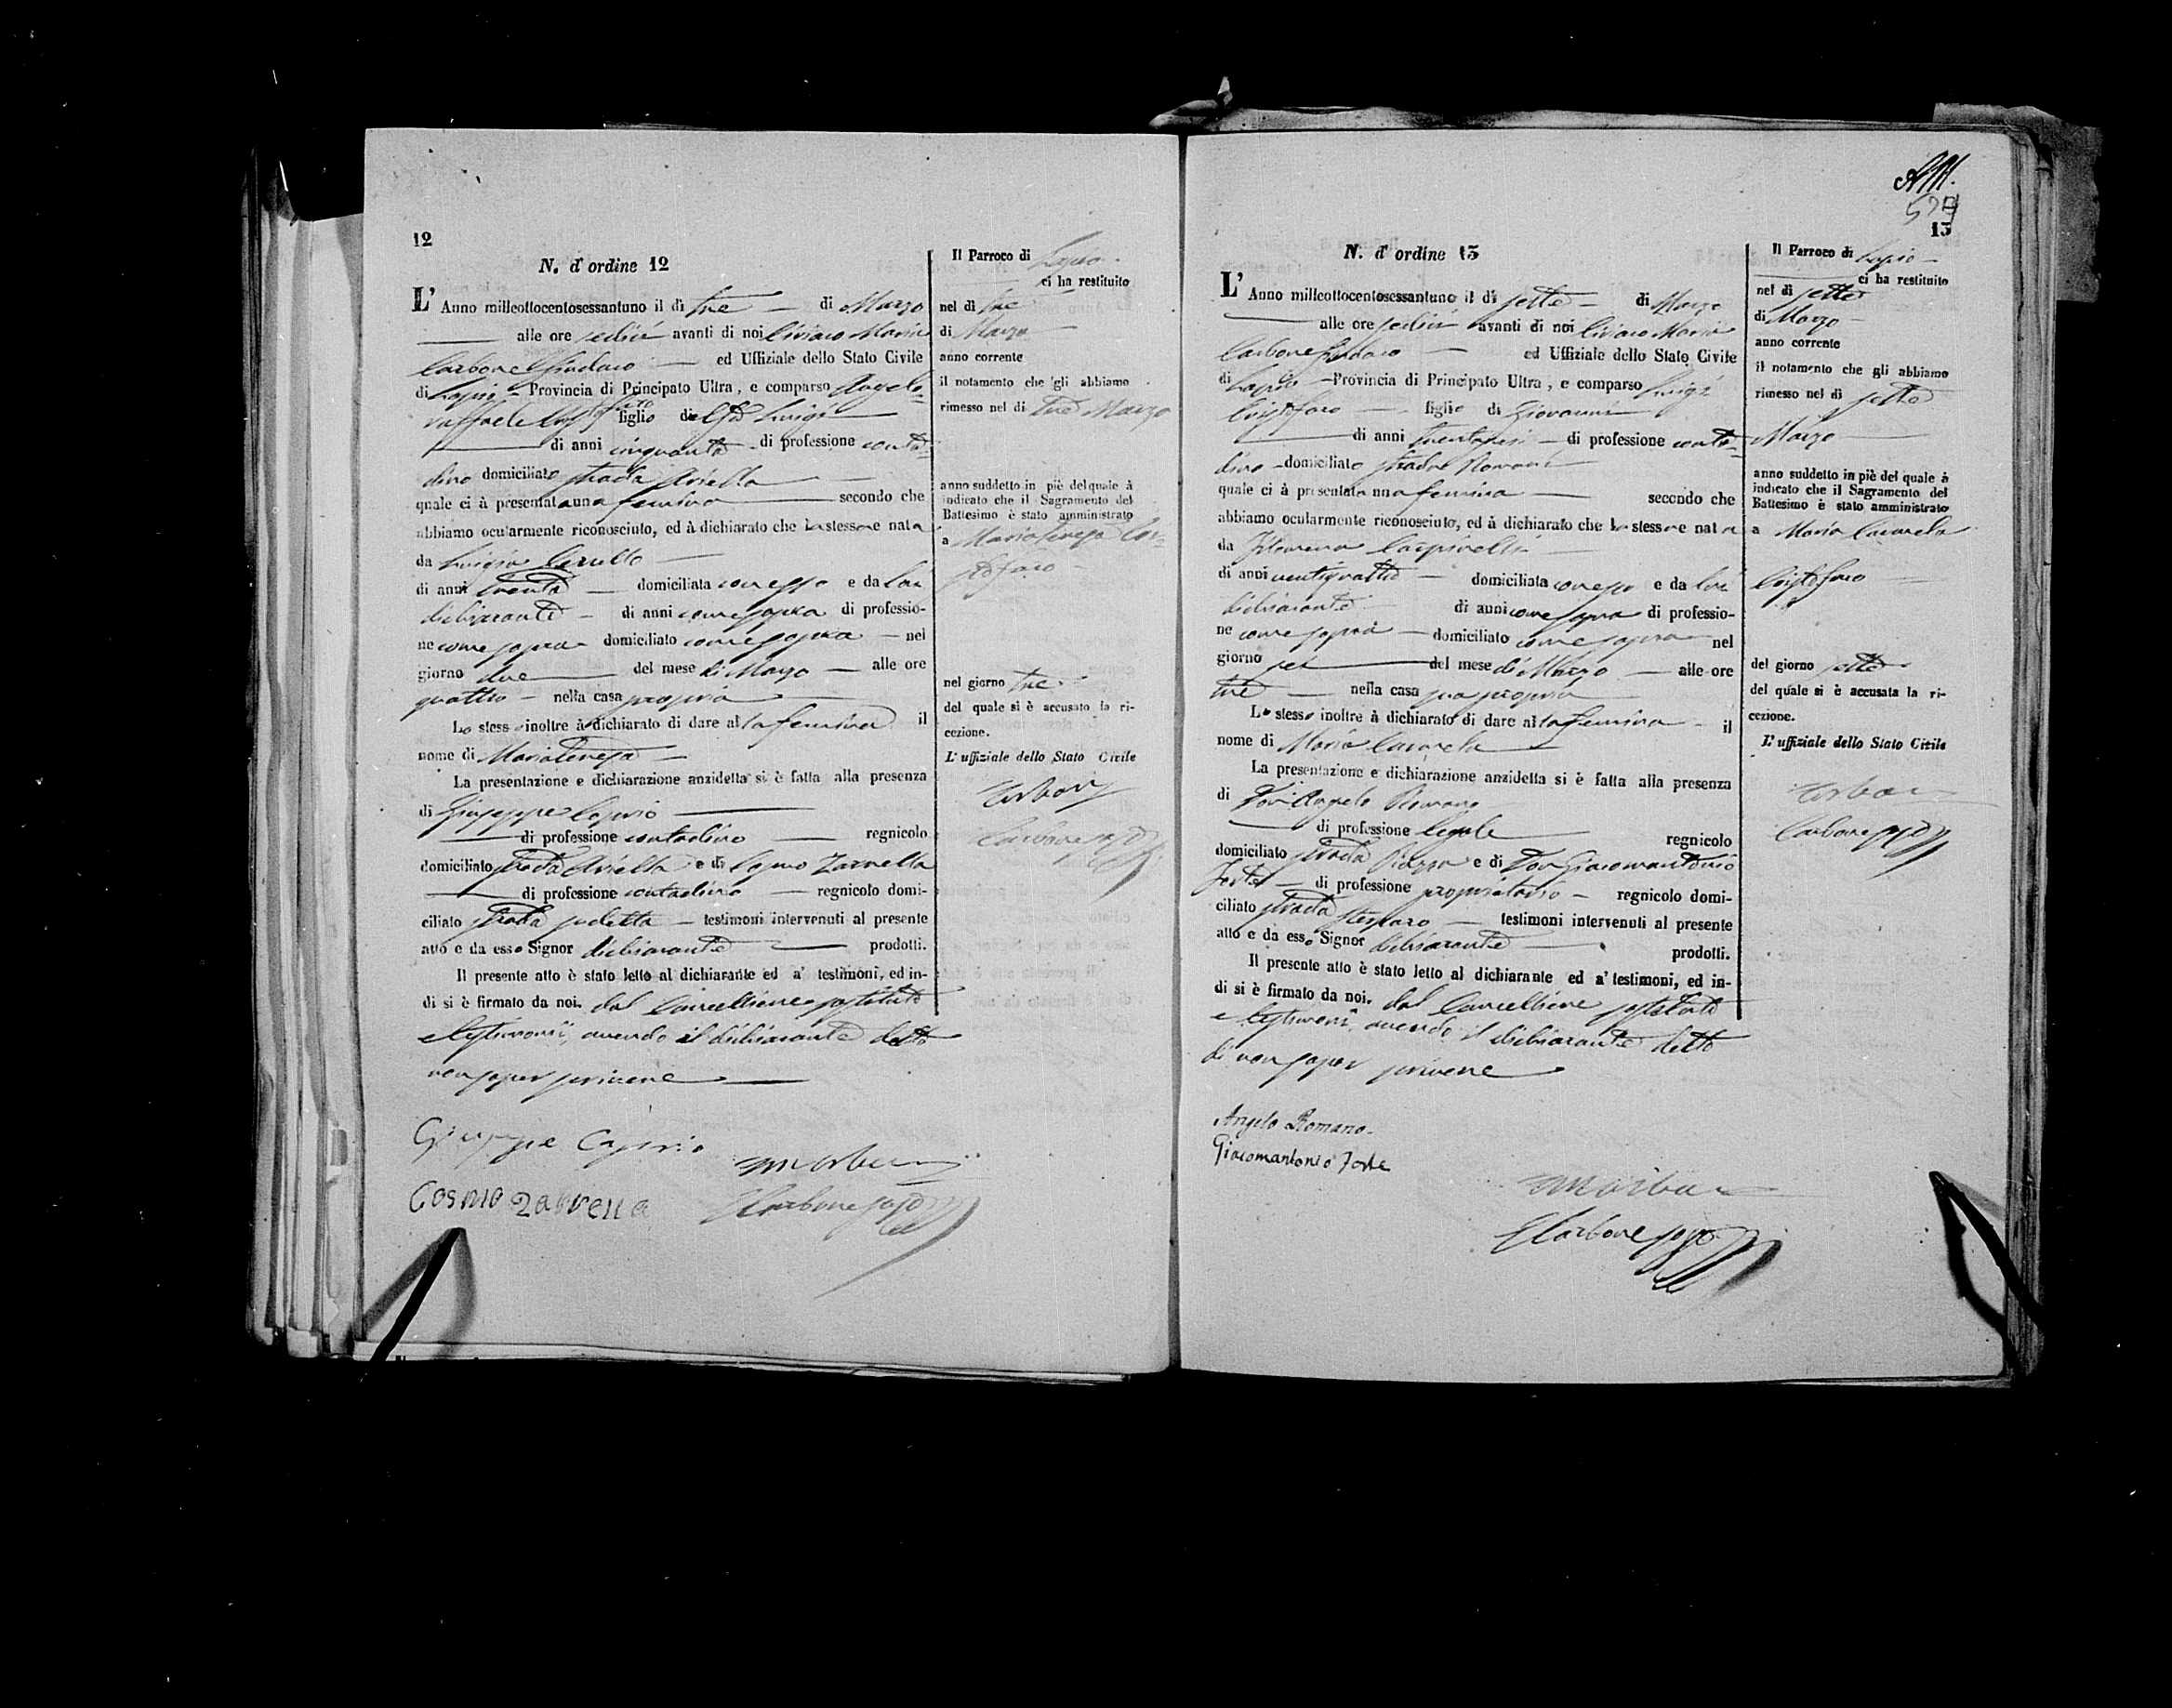 12
N. d'ordine 12
L'Anno milleottocentosessantuno il dì tre di Marzo
alle ore sedici avanti di noi Ciriaco Maria
Carbone Sindaco ed Uffiziale dello Stato Civile
di Lapio Provincia di Principato Ultra, e comparso Angelo
raffaele figlio di Luigi
di anni cinquanta di professione conta-
dino domiciliato strada Ariella
quale ci à presentat una femina secondo che
abbiamo ocularmente riconosciuto, ed à dichiarato che la stessa e nata
da Luigia
di anni trenta domiciliata con esso e da lui
dichiarante di anni come sopra di professio-
ne come sopra domiciliato come sopra nel
giorno due del mese di Marzo alle ore
quattro nella casa propria
Lo stesso inoltre à dichiarato di dare alla femina il
nome di Mariateresa
La presentazione e dichiarazione anzidetta si è fatta alla presenza
di Giuseppe Caprio
di professione contadino regnicolo
domiciliato strada Ariella e di Cosmo Zarrella
di professione contadino regnicolo domi-
ciliato strada testimoni intervenuti al presente
atto e da esso Signor dichiarante prodotti.
Il presente atto è stato letto al dichiarante ed a' testimoni, ed in-
di si è firmato da noi. dal Cancelliere sostituto
e testimonii, avendo il dichiarante detto
non saper scrivere
Giuseppe Caprio
Cosmo Zarrella
Carbone
Il Parroco di Lapio
ci ha restituito
nel dì tre
di Marzo
anno corrente
il notamento che gli abbiamo
rimesso nel di tre Marzo
anno suddetto in piè del quale à
indicato che il Sagramento del
Battesimo è stato amministrato
a Maria Teresa Cri-
stofaro
nel giorno tre
del quale si è accusato la ri-
cezione.
L'uffiziale dello Stato Civile
Carbone
13
N. d'ordine 13
L'Anno milleottocentosessantuno il dì sette di Marzo
alle ore sedici avanti di noi Ciriaco Maria
Carbone Sindaco ed Uffiziale dello Stato Civile
di Lapio Provincia di Principato Ultra, e comparso Luigi
Cristofaro figlio di Giovanni
di anni trentasei di professione conta-
dino domiciliato strada Romani
quale ci à presentata una femina secondo che
abbiamo ocularmente riconosciuto, ed à dichiarato che la stessa e nata
da Filomena Carpinelli
di anni ventiquattro domiciliata con esso e da lui
dichiarante di anni come sopra di professio-
ne come sopra domiciliato come sopra nel
giorno sei del mese di Marzo alle ore
tre nella casa sua propria
Lo stesso inoltre à dichiarato di dare alla femina il
nome di Maria
La presentazione e dichiarazione anzidetta si è fatta alla presenza
di Don Angelo Romano
di professione legale regnicolo
domiciliato strada Piazza e di Don Giacomantonio
Forte di professione proprietario regnicolo domi-
ciliato strada testimoni intervenuti al presente
atto e da esso Signor dichiarante prodotti.
Il presente atto è stato letto al dichiarante ed a' testimoni, ed in-
di si è firmato da noi. dal Cancelliere sostituto
e testimoni, avendo il dichiarante detto
di non saper scrivere
Angelo Romano
Giacomantonio Forte
Carbone
Il Parroco di Lapio
ci ha restituito
nel di sette
di Marzo
anno corrente
il notamento che gli abbiamo
rimesso nel di sette
Marzo
anno suddetto in piè del quale à
indicato che il Sagramento del
Battesimo è stato amministrato
a Maria
Cristofaro
del giorno sette
del quale si è accusata la ri-
cezione.
L'uffiziale dello Stato Civile
Carbone